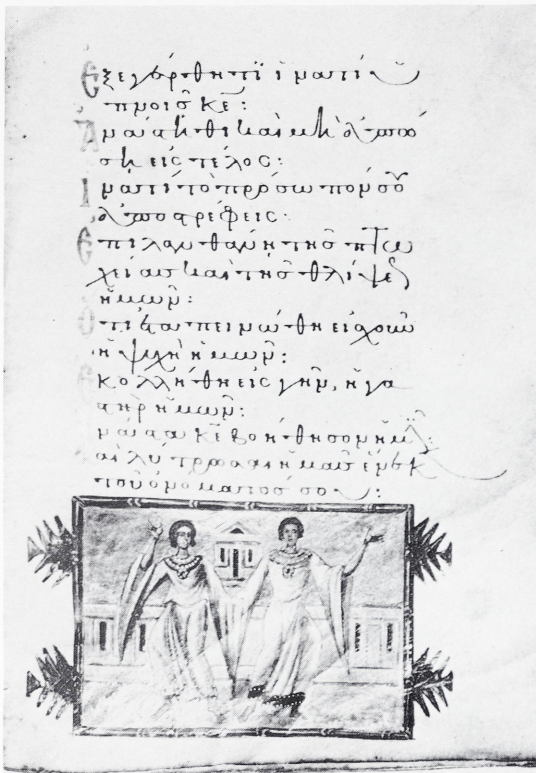 Ἐξεγέρθητι ἵνατί ὑ
πνοῖς κ̅ε̅:
Ἀνάστηθι καὶ μὴ ἀπώ
ση εἰς τέλος:
Ἵνατί τὸ πρόσωπόν σου
ἀποστρέφεις:
Ἐπιλανθάνη τῆς πτω
χείας καὶ τῆς θλίψεως
ἡμῶν:
Ὅτι ἐταπεινώθη εἰς χοῦν
ἡ ψυχὴ ἡμῶν:
Ἐκολλήθη εἰς γῆν, ἡ γα
στὴρ ἡμῶν:
Ἀνάστα κ̅ε̅ βοήθησον ἡμῖν:
καὶ λύτρωσαι ἡμᾶς ἕνεκ
τοῦ ὀνόματός σου: